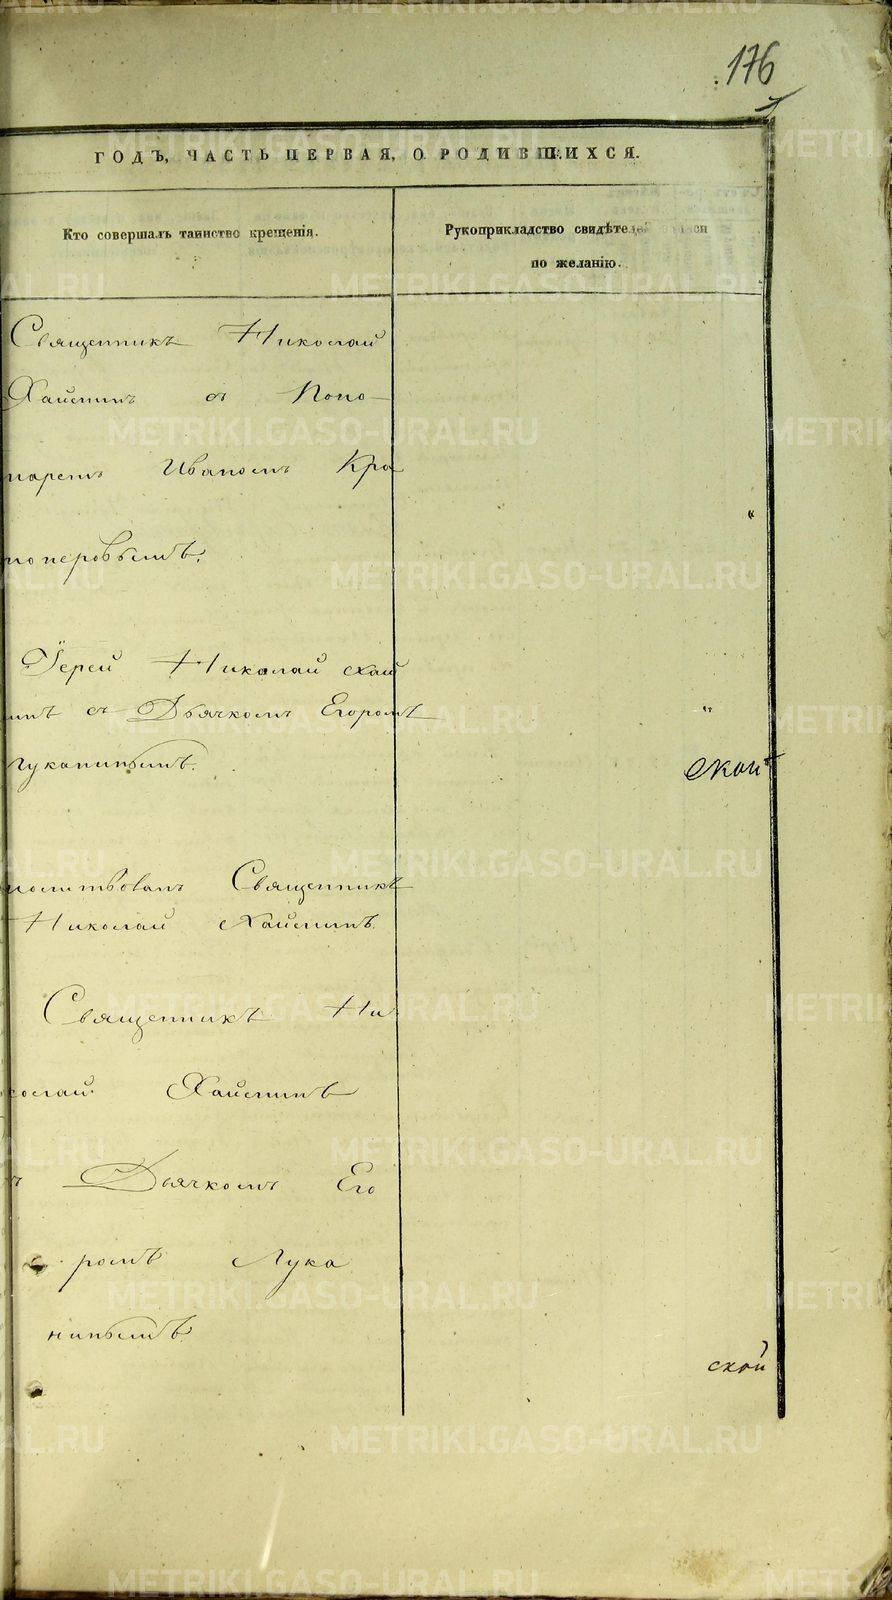 176
ГОДЪ, ЧАСТЬ ПЕРВАЯ, О РОДИВШИХСЯ.
Кто совершалъ таинство крещенія.
Рукоприкладство свидѣтелей
по желанію.
Священникъ Николай
Хайминъ съ Поно-
маремъ Иваномъ Кра
ноперовымъ.
Іерей Николай Хай
минъ съ Дьячкомъ Егоромъ
Луканинымъ.
ской
молитвовалъ Священникъ
Николай Хайминъ
Священникъ Ни
колай Хайминъ
съ Дьячкомъ Его
ромъ Лука
нинымъ
ской
METRIKI.GASO-URAL.RU